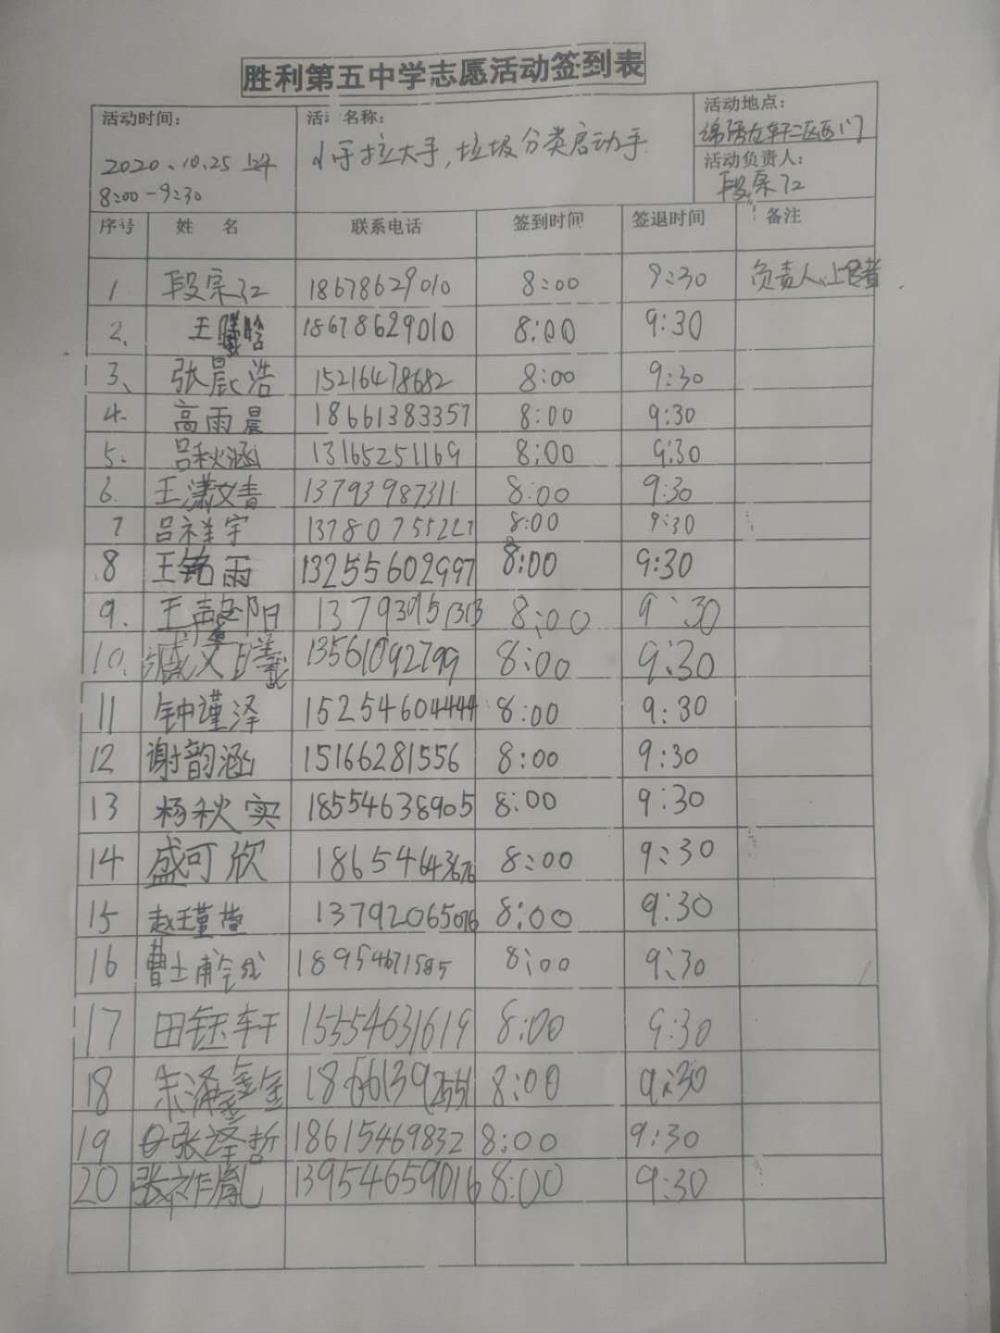 胜利第五中学志愿活动签到表
活动时间：
2020.10.25 上午
8:00-9:30
活动名称：
小手拉大手，垃圾分类启动手
活动地点：
活动负责人：
段宗江
序号 姓 名 联系电话 签到时间 签退时间 备注
1 段宗江 18678629010 8:00 9:30 负责人
2、 王曦晗 18678629010 8:00 9:30
3、 张晨浩 15216478682 8:00 9:30
4. 高雨晨 18661383357 8:00 9:30
5. 吕秋涵 13165251169 8:00 9:30
6. 王潇文青 13793987311 8:00 9:30
7 吕祥宇 13780755227 8:00 9:30
8 王铭雨 13255602997 8:00 9:30
9. 8:00 9:30
10. 13561092799 8:00 9:30
11 钟谨泽 15254604444 8:00 9:30
12 谢韵涵 15166281556 8:00 9:30
13 杨秋实 18554638905 8:00 9:30
14 盛可欣 18654643676 8:00 9:30
15 13792065076 8:00 9:30
16 18954671585 8:00 9:30
17 田钰轩 15554631619 8:00 9:30
18 朱泽鑫 8:00 9:30
19 张泽哲 18615469832 8:00 9:30
20 张祚胤 13954659016 8:00 9:30